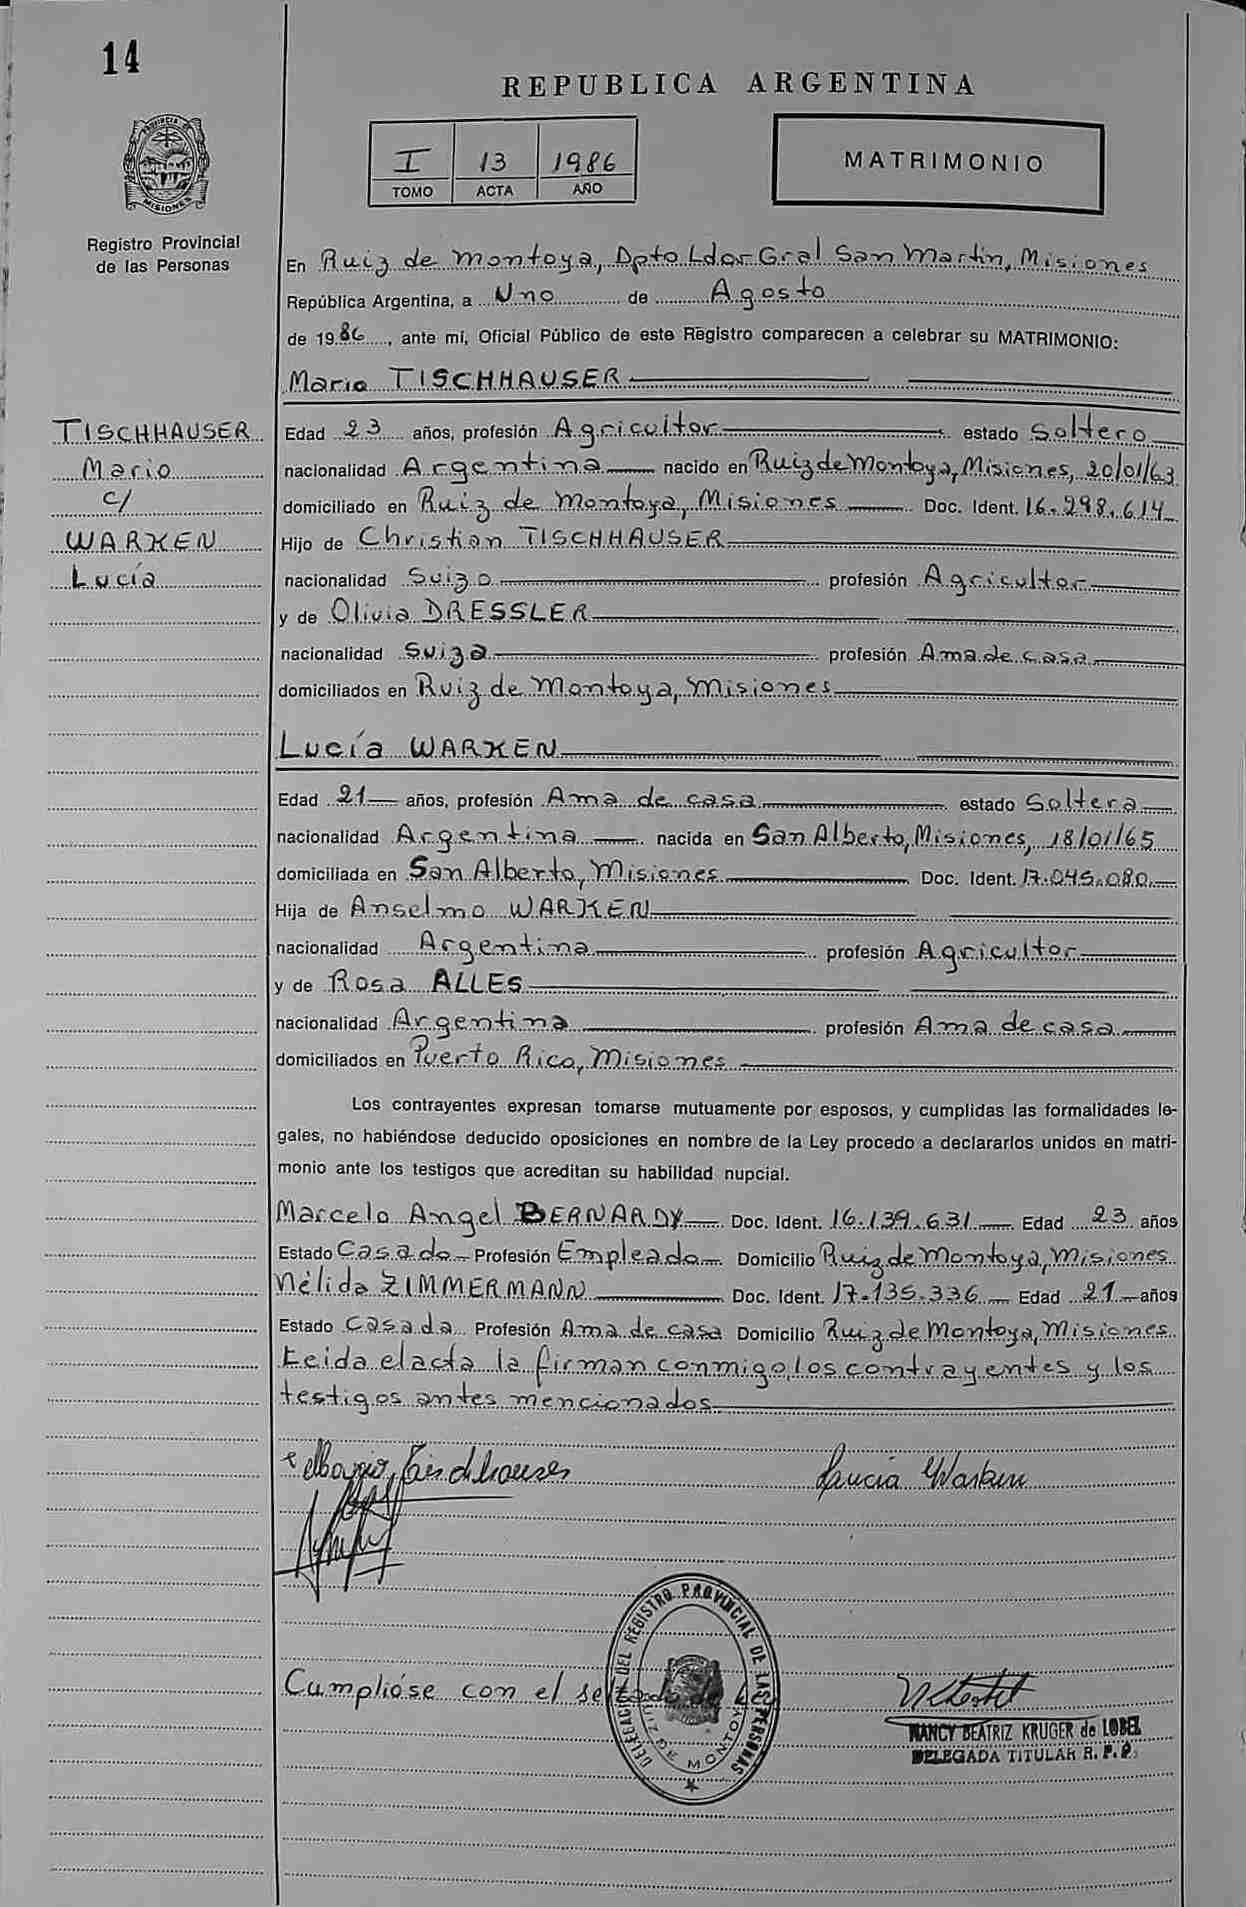 14
REPUBLICA ARGENTINA
PROVINCIA DE
MISIONES
I 13 1986
TOMO ACTA AÑO
MATRIMONIO
Registro Provincial
de las Personas
En Ruiz de Montoya, Dpto Ldor Gral San Martín, Misiones
República Argentina, a Uno de Agosto
de 1986, ante mí, Oficial Público de este Registro comparecen a celebrar su MATRIMONIO:
Mario TISCHHAUSER
TISCHHAUSER
Mario
c/
WARKEN
Lucía
Edad 23 años, profesión Agricultor estado Soltero
nacionalidad Argentina nacido en Ruiz de Montoya, Misiones, 20/01/63
domiciliado en Ruiz de Montoya, Misiones Doc. Ident. 16.298.614
Hijo de Christian TISCHHAUSER
nacionalidad Suizo profesión Agricultor
y de Olivia DRESSLER
nacionalidad Suiza profesión Ama de casa
domiciliados en Ruiz de Montoya, Misiones
Lucía WARKEN
Edad 21 años, profesión Ama de casa estado Soltera
nacionalidad Argentina nacida en San Alberto, Misiones, 18/01/65
domiciliada en San Alberto, Misiones Doc. Ident. 17.045.080
Hija de Anselmo WARKEN
nacionalidad Argentina profesión Agricultor
y de Rosa ALLES
nacionalidad Argentina profesión Ama de casa
domiciliados en Puerto Rico, Misiones
Los contrayentes expresan tomarse mutuamente por esposos, y cumplidas las formalidades le-
gales, no habiéndose deducido oposiciones en nombre de la Ley procedo a declararlos unidos en matri-
monio ante los testigos que acreditan su habilidad nupcial.
Marcelo Angel BERNARDY Doc. Ident. 16.139.631 Edad 23 años
Estado Casado Profesión Empleado Domicilio Ruiz de Montoya, Misiones
Nélida ZIMMERMANN Doc. Ident. 17.135.336 Edad 21 años
Estado Casada Profesión Ama de casa Domicilio Ruiz de Montoya, Misiones
Leida el acta la firman conmigo, los contrayentes y los
testigos antes mencionados
Tischhauser
Lucia Warken
Cumplióse con el sellado de Ley
DELEGACION DEL REGISTRO PROVINCIAL DE LAS PERSONAS
RUIZ DE MONTOYA
NANCY BEATRIZ KRUGER de LOBEL
DELEGADA TITULAR R. P. P.